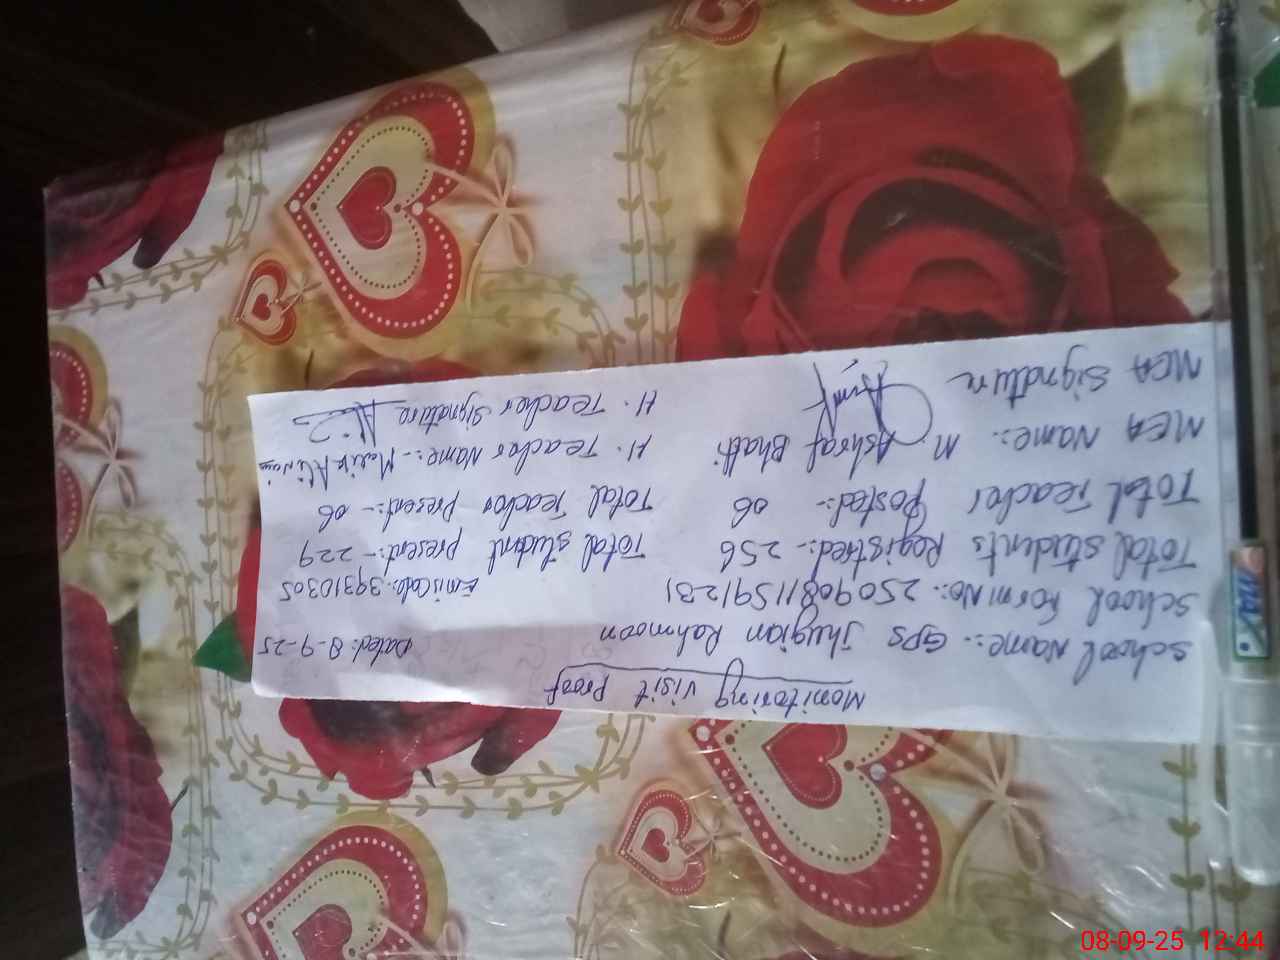 Monitoring Visit Proof
School Name:- GPS Jhugian Rahmoon Dated: 8-9-25
School Form No:- 25090811591231 Emis Code: 39310305
Total students Registred:- 256 Total student present:- 229
Total Teacher Posted:- 06 Total Teacher Present:- 06
MEA Name:- M Ashraf Bhatti H. Teacher Name:- Malik Ali
MEA Signature H. Teacher Signature
08-09-25 12:44